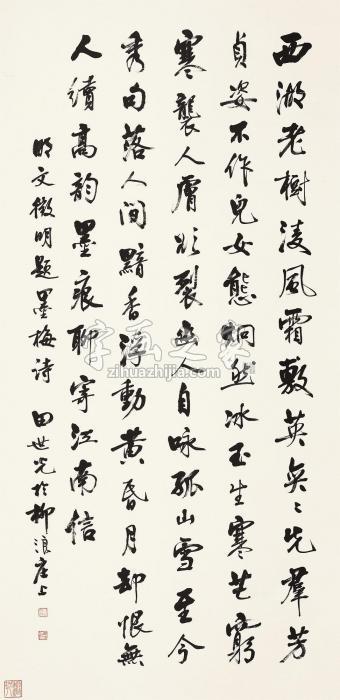 西湖老樹凌風霜敷英奕々先羣芳
貞姿不作兒女態炯然冰玉生寒芒窮
寒襲人膚欲裂幽人自咏孤山雪至今
秀句落人間黯香浮動黄昏月却恨無
人續高韵墨痕聊寄江南信
明文徵明題墨梅詩 田世光於柳浪庄上
字画之家
zihuazhijia.com